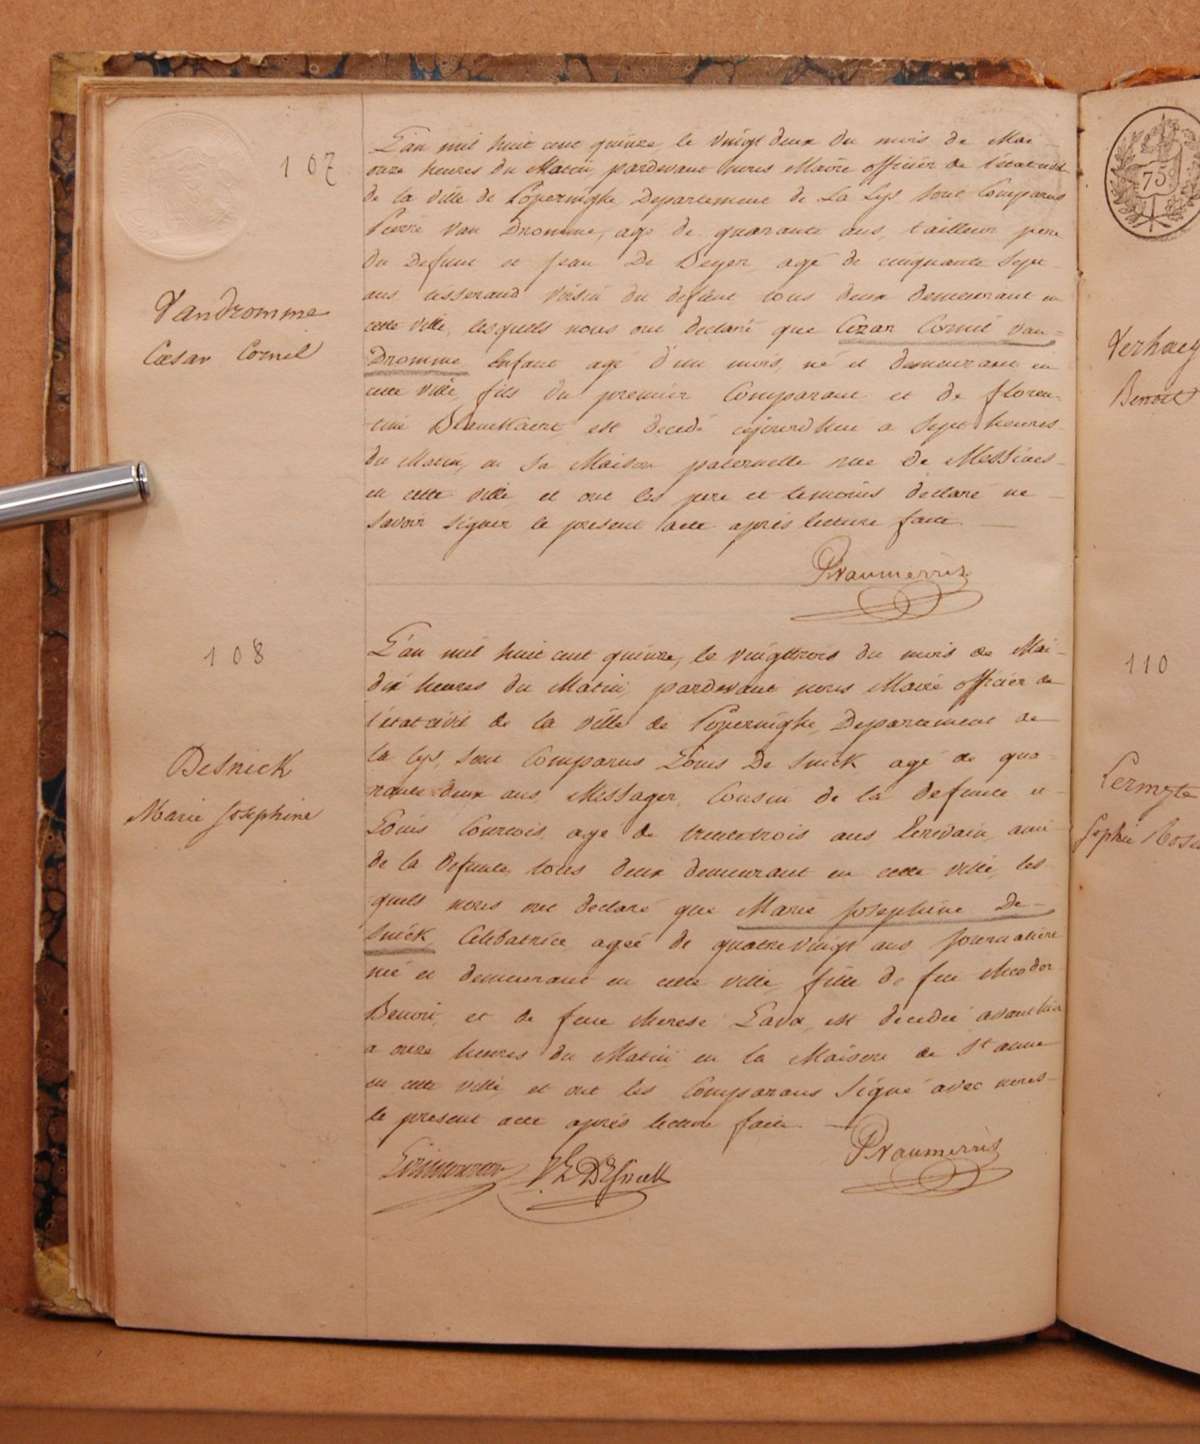 107
Vandromme
Cæsar Cornel
L'an mil huit cent quinze le vingt deux du mois de Mai
onze heures du Matin pardevant nous Maire officier de l'etat civil
de la ville de Poperinghe Departement de La Lys sont Comparus
Pierre Van Dromme, agé de quarante ans, tailleur pere
du Defunt et Jean De Beyer agé de cinquante sept
ans tisserand voisin du defunt tous deux demeurant en
cette ville, lesquels nous ont declaré que Cezar Cornil Van-
Dromme Enfant agé d'un mois, né et demeurant en
cette ville, fils du premier Comparant et de Floren-
tine Blanckaert, est decedé cejourd'huy a Sept heures
du Matin, en sa Maison paternelle rue de Messines
en cette ville, et ont les pere et temoins declaré ne
savoir signer le present acte après lecture faite.
PVanmerris
108
Desnick
Marie Josephine
L'an mil huit cent quinze, le vingttrois du mois de Mai
dix heures du Matin, pardevant nous Maire officier de
l'etat civil de la ville de Poperinghe, Departement de
la Lys, sont Comparus Louis De Snick agé de qua-
rante deux ans, Messager, Cousin de la defunte et
Louis Courtois, agé de trente trois ans Ecrivain, ami
de la Defunte, tous deux demeurant en cette ville, les
quels nous ont declaré que Marie Josephine De-
snick, Celibatrice ageé de quatrevingt ans, Journaliere
née et demeurant en cette ville, fille de feu
Benoit, et de feue therese Lava, est decedée avanthier
a onze heures du Matin en la Maison de St anne
en cette ville et ont les Comparans Signé avec nous
le present acte après lecture faite
PVanmerris
75
Verhaeg
Benoit
110
Permyte
Sophie Rosa